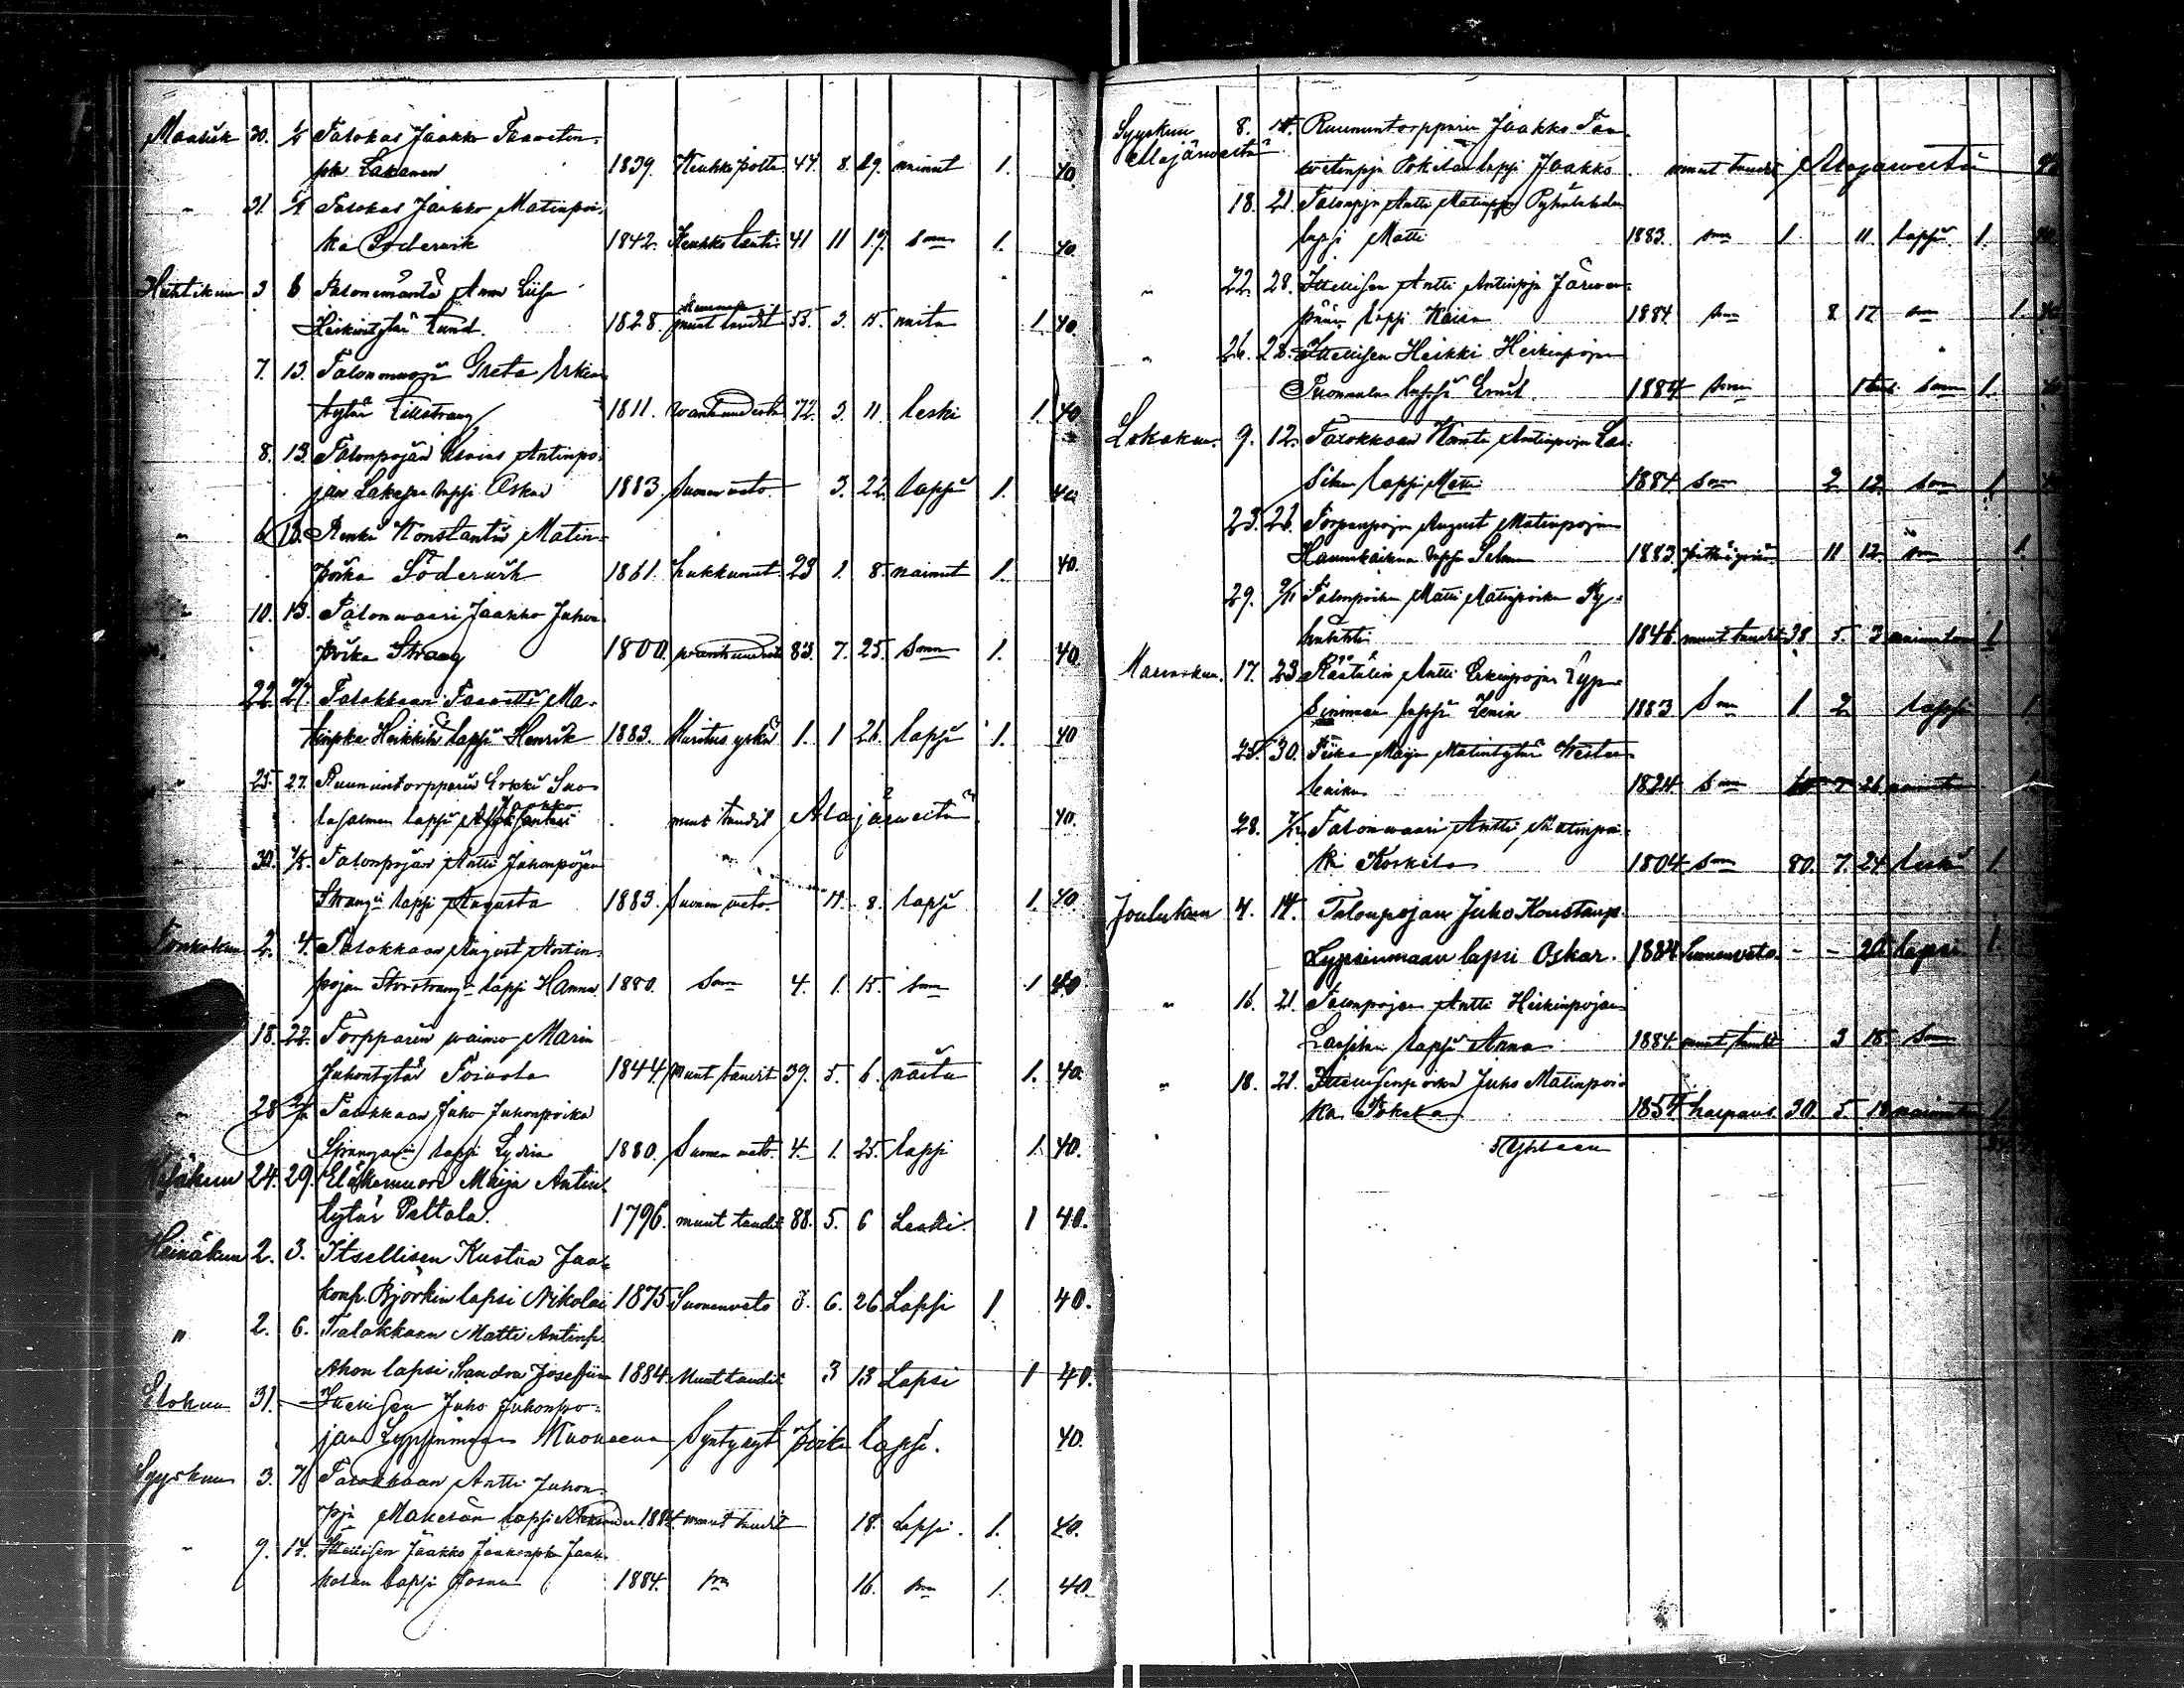 Maalisk 30. Talokas Jaakko Taavetin-
pka Lakanen 1839. Keuhko poltto 44 8. 29. nainut 1. 40.
" 31. Talokas Jaakko Matinpoi-
ka Södervik 1842. Keuhko tauti 41 11 19. sama 1. 40.
Huhtikuu 3 6 Talonemäntä Anna Liisa
Heikintytär Lund. 1828. muut taudit 55. 3. 15. naitu 1. 40.
7. 13. Talonmuori Greta Erkin
tytär Lillstrang 1811. vanhuudesta 72. 3. 11 leski 1. 40
8. 13. Talonpojan Antinpo-
jan lapsi Oskar 1883. Suonenveto. 3. 22. lapsi 1. 40.
" 6 13. Renki Konstantin Matin-
poika Södervik 1861. hukkunut 23 1. 8. nainut 1. 40.
" 10. 13. Talonvaari Jaakko Juhon
poika Strang 1800. vanhuudesta 83. 7. 25. sama 1. 40.
22. 27. Talokkaan Taavetti Ma-
tinpka Heikkilä lapsi Henrik 1883. Kuristus yskä 1. 1 26. lapsi 1. 40
" 25. 27. Ruununtorpparin Erkki Suo-
lasalmen lapsi Jaakko muut taudit Alajärveltä 40.
" 30. 4/5. Talonpojan Antti Juhonpojan
Strangin lapsi Augusta 1883. Suonenveto. 11. 8. lapsi 1. 40
Toukokuu 2. 4. Talokkaan August Antin-
pojan Storstrang-n lapsi Hanna. 1880. Sama 4. 1. 15. sama 1 40
18. 22. Torpparin vaimo Maria
Juhontytär Toivola 1844. Muut taudit 39. 5. 6. naitu 1. 40.
" 28 Talokkaan Juho Juhonpoika
lapsi Lydia 1880. Suonen veto. 4. 1. 25. lapsi 1. 40.
Kesäkuu 24. 29. Eläkemuori Maija Antin-
tytär Paltala. 1796. muut taudit 88. 5. 6 Leski. 1 40.
Heinäkuu 2. 3. Itsellisen Kustaa Jaa-
konp. Björkin lapsi Nikolai 1875 Suonenveto 8. 6. 26. Lapsi 1 40.
" 2. 6. Talokkaan Matti Antinp.
Ahon lapsi Sandra Josefiina 1884. Muut taudit 3 13 Lapsi 1 40.
Elokuu 31. — Itsellisen Juho Juhonpo-
jan Lypsinmaan Kuolleena Syntynyt poika lapsi. 40.
Syyskuu 3. 7 Talokkaan Antti Juhon-
pja Mäkelän lapsi Aleksander 1884. muut taudit 18. Lapsi. 1. 40.
" 9. 14. Itsellisen Jaakko Jaakonpka Jaak-
kolan lapsi 1884. sama 16. sama 1. 40
Syyskuu 8. 14. Ruununtorpparin Jaakko Taa-
Alajärveltä
vetinpja Pokelan lapsi Jaakko muut taudit Alajärveltä 40
18. 21. Talonpjn Antti Matinpjn Pyhälahden
lapsi Matti 1883. sama 1. 11. lapsi. 1. 40.
" 22. 28. Itsellisen Antti Antinpja Järven-
pään lapsi Kaisa 1884 sama 8 17. sama 1. 40
" 26. 28. Itsellisen Heikki Heikinpojan
Tuomaalan lapsi Emil 1884 sama 1 sama 1.
Lokakuu. 9. 12. Talokkaan Antinpojan Laa-
silan lapsi Matti 1884. Sama 2. 12. sama 1
23. 26. Torpanpojan August Matinpojan
lapsi Selma 1883. 11 12. sama 1.
29. 9/11 Talonpoika Matti Matinpoika Py-
hälahti 1846 muut taudit 38 5. 3 naimaton 1
Marraskuu. 17. 23 Räätälin Antti Erkinpojan Lyp-
sinmaan lapsi Lenia 1883 Sama 1. 2 lapsi 1
25. 30. Piika Maija Matintytär Wester-
1824 sama 60 7 26 naimaton 1
28. 7/12 Talonvaari Antti Matinpoi-
ka Koskela 1804 sama 80. 7. 24 leski 1
Joulukuu 4. 14. Talonpojan Juho Konstanp.
Lypsinmaan lapsi Oskar. 1884 Suonenveto. - - 20 lapsi. 1.
" 16. 21. Talonpojan Antti Heikinpojan
Laasilan lapsi Anna 1884. muut taudit 3 18. Sama
" 18. 21. Itsellisenpoika Juho Matinpoi-
ka Pokela 1854 halpaus 30. 5. 18 naimaton 1
Yhteensä